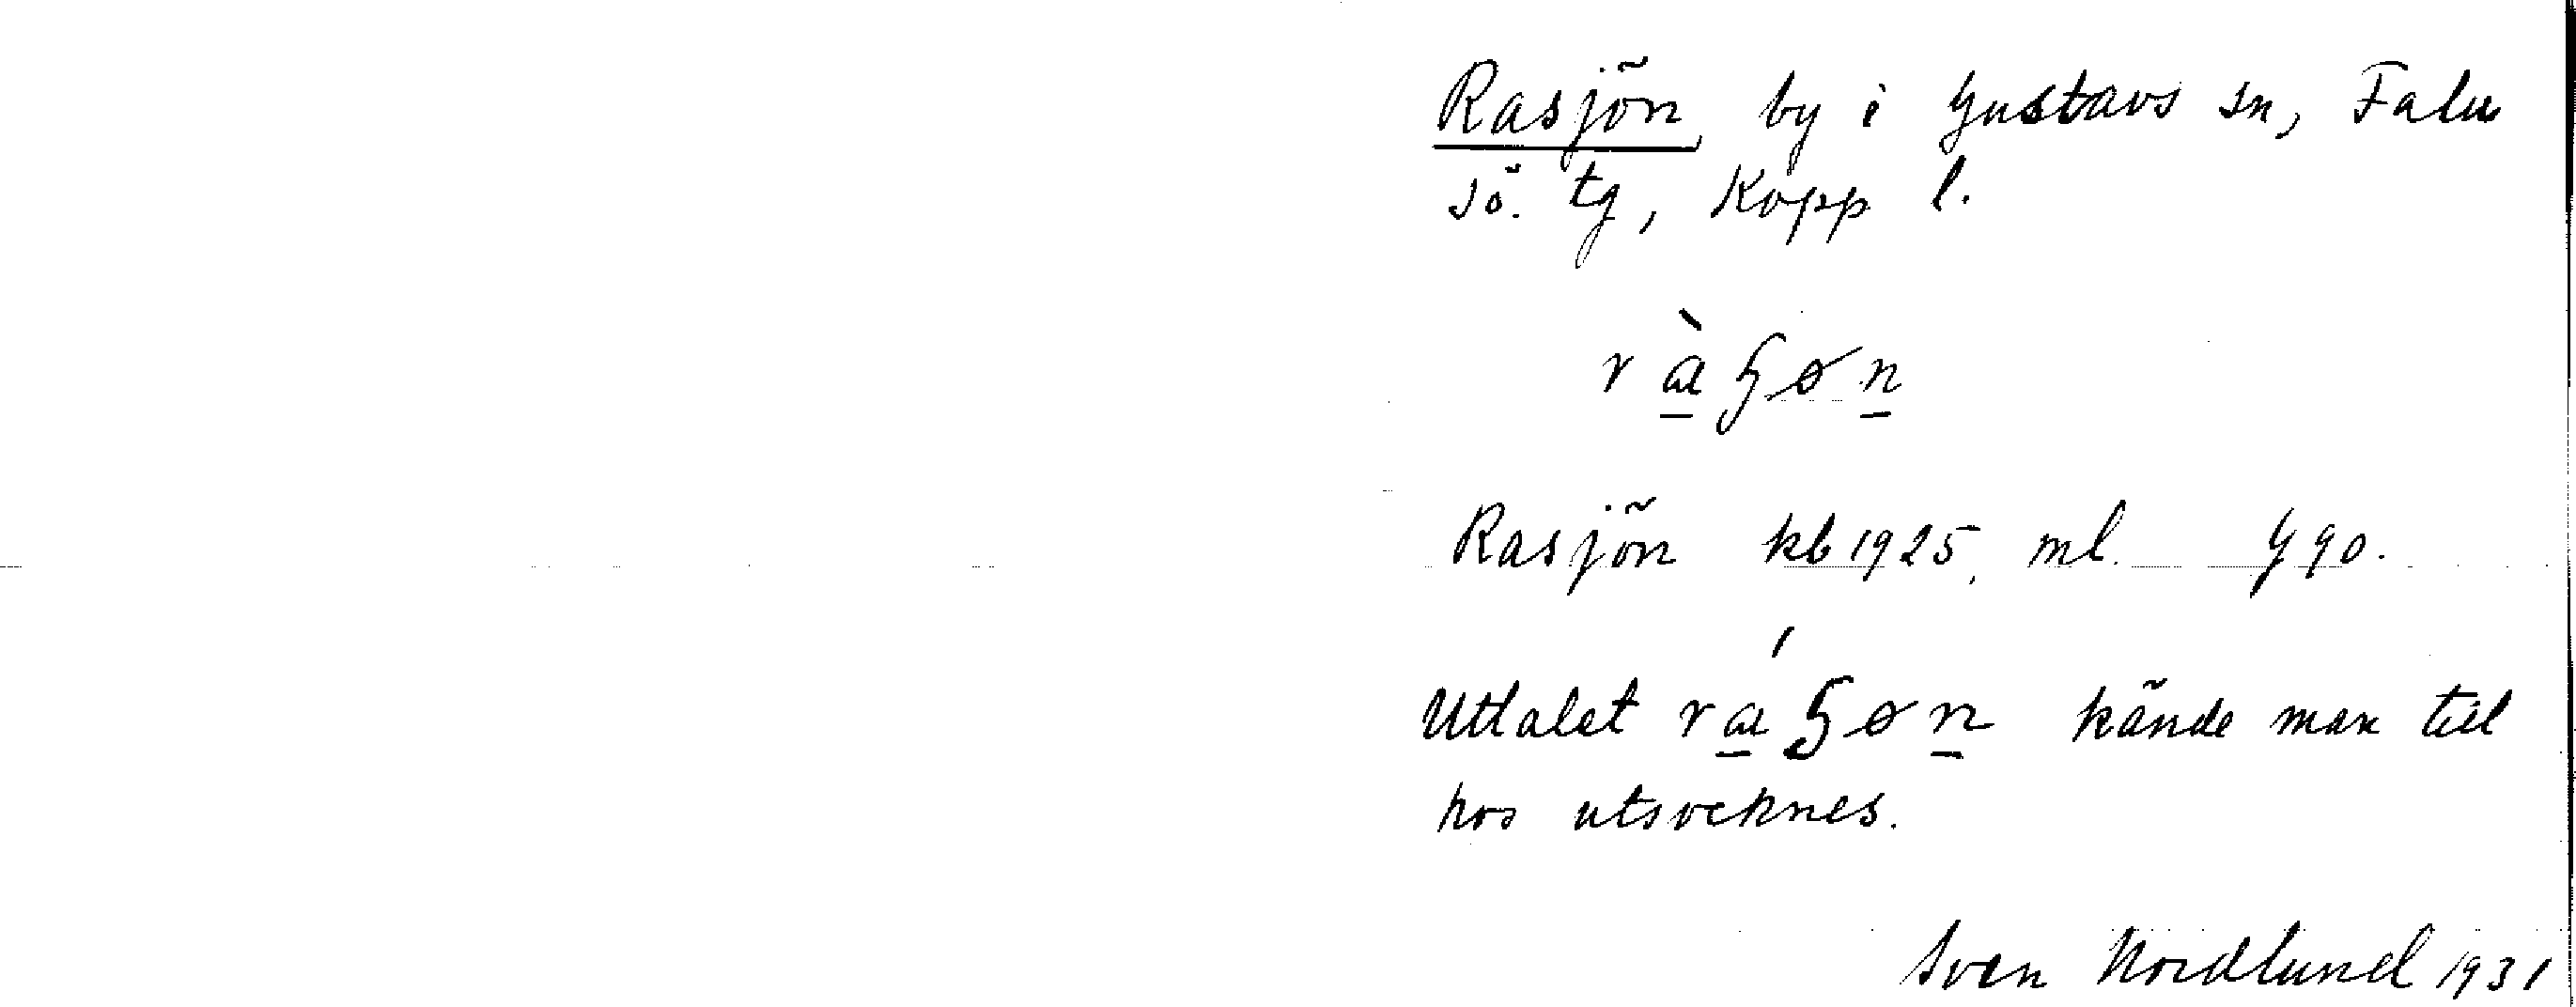 Rasjön, by i Gustavs sn, Falu
sö. tg, Kopp l.
Rasjön kb 1925, ml. G 90.
Uttalet kände man till
hos utsocknes.
Sven Nordlund 1931